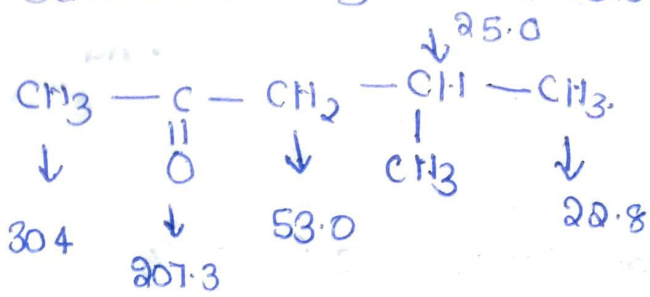 25.0
CH3 — C — CH2 — CH — CH3.
O CH3
304 207.3 53.0 22.8